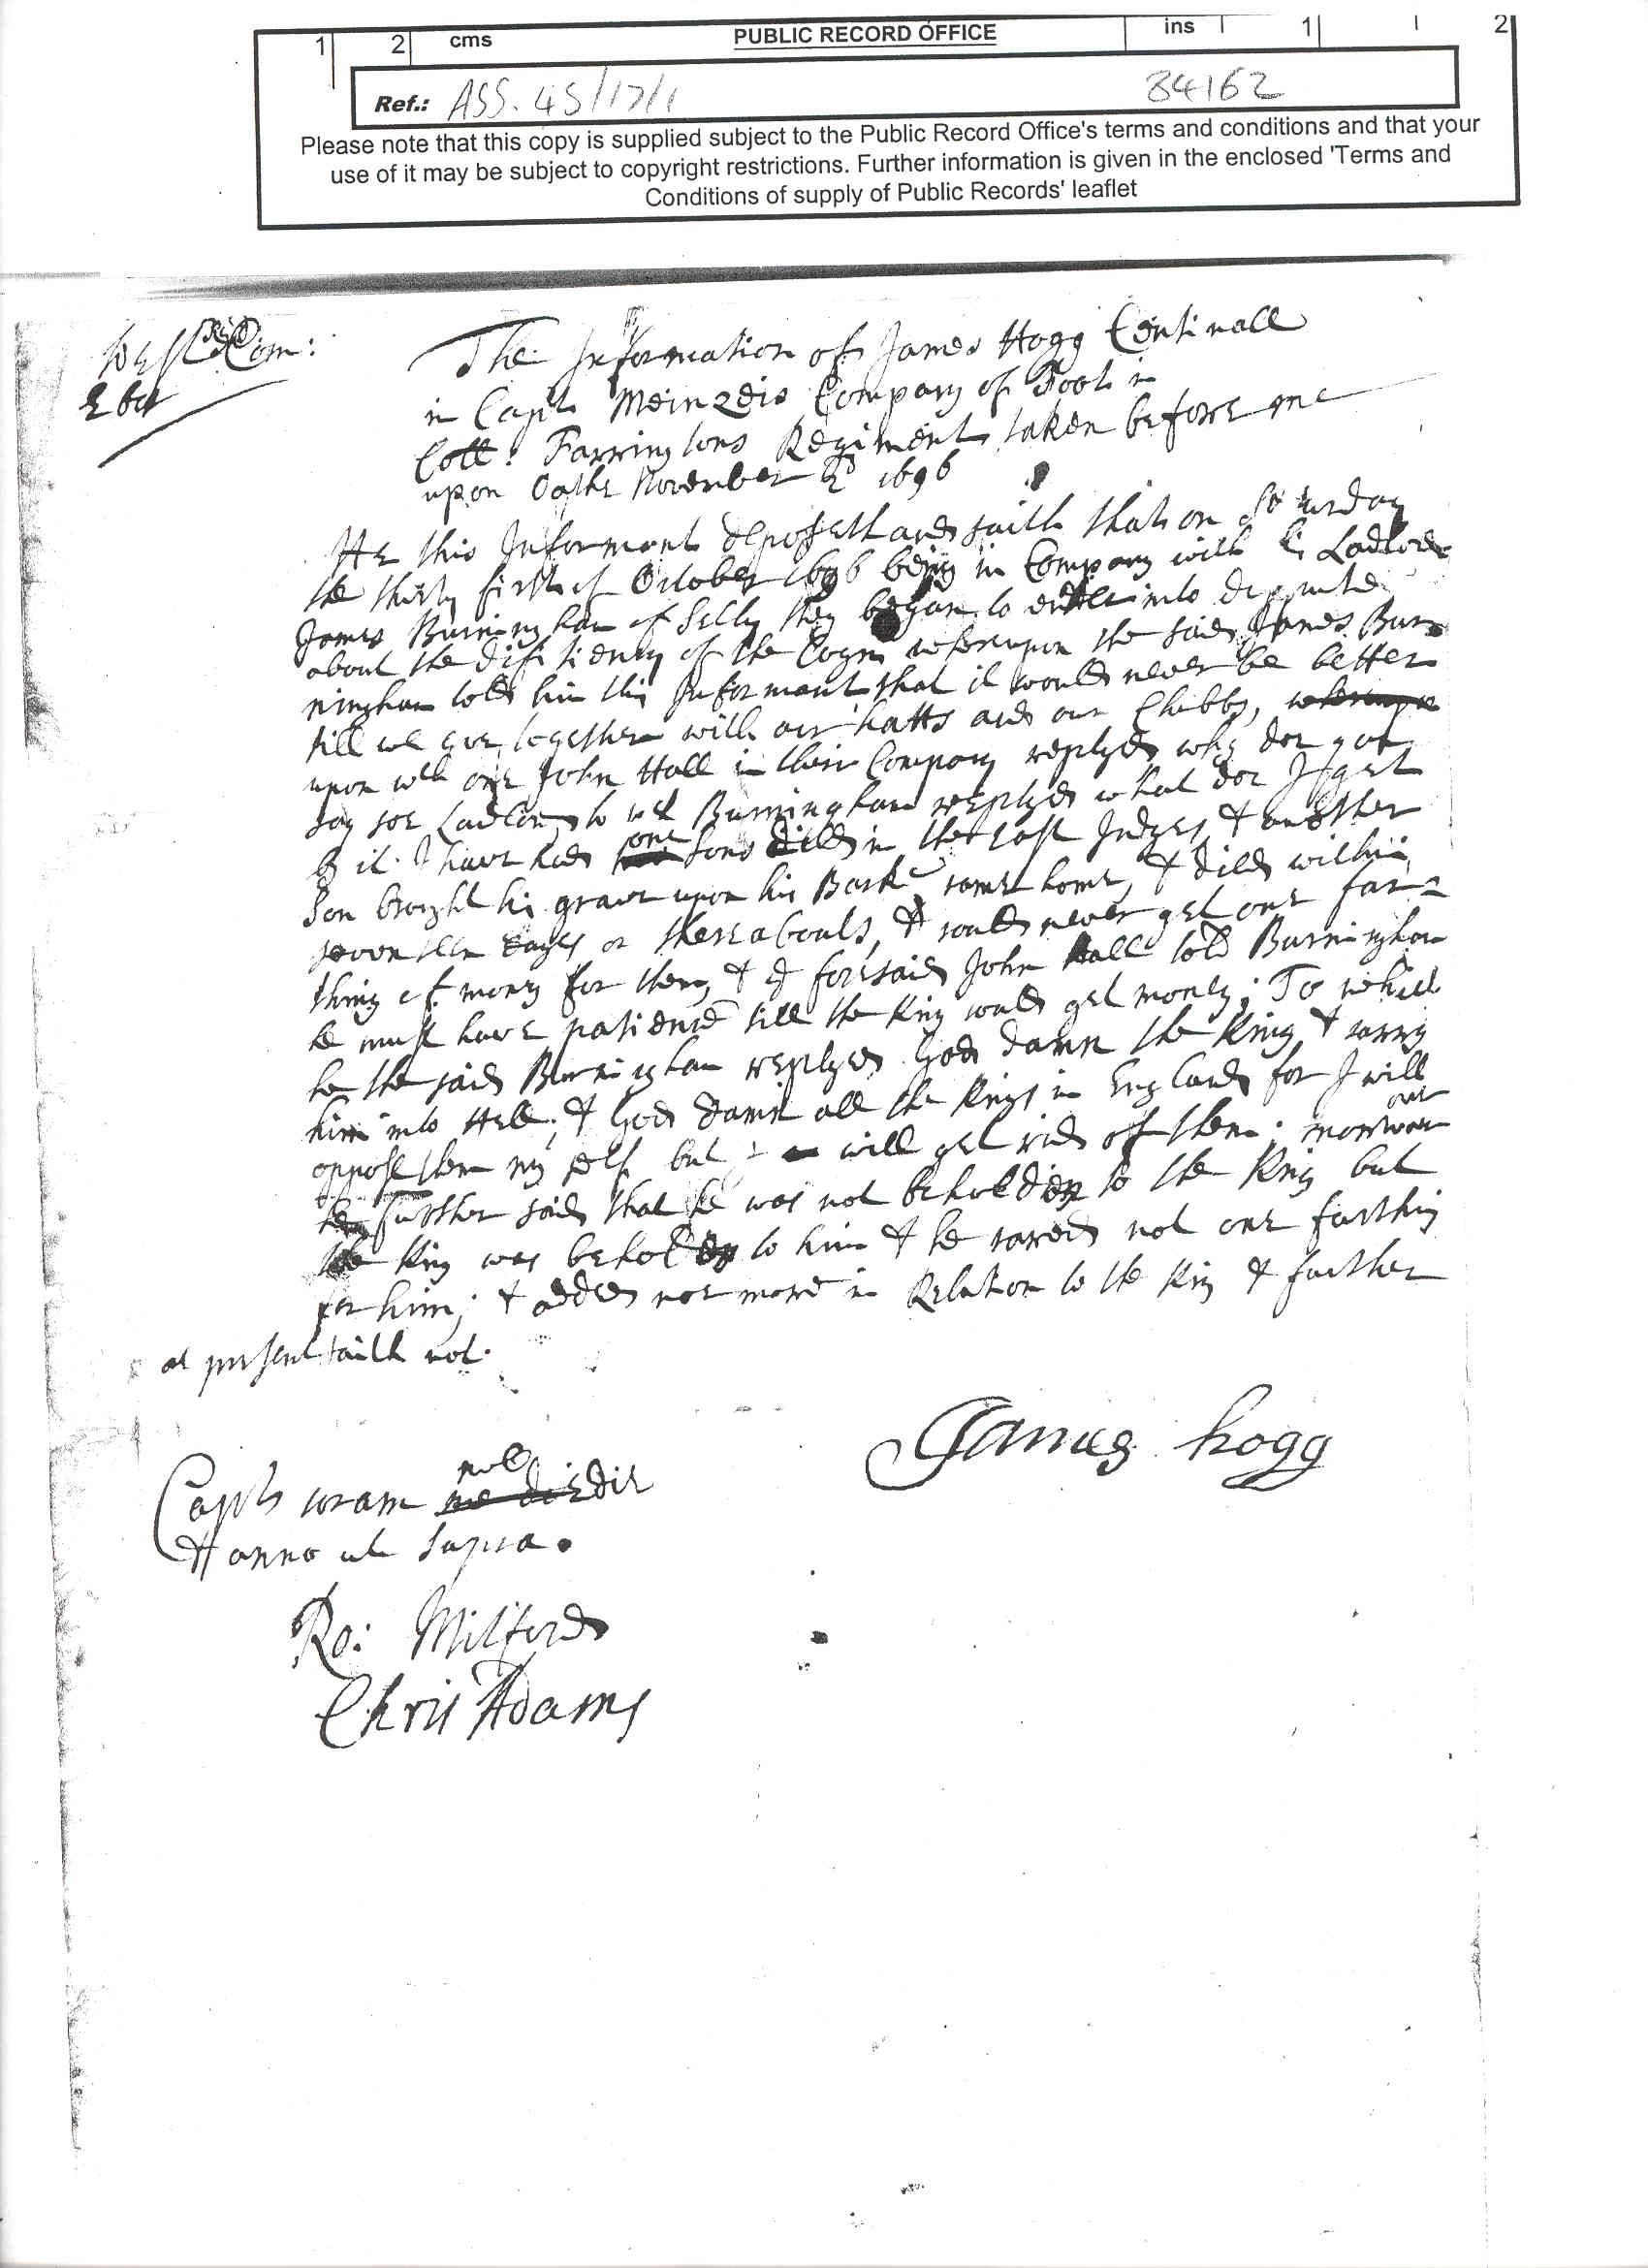 1 2 cms PUBLIC RECORD OFFICE ins 1 2
Ref.: ASS. 45/17/1 84162
Please note that this copy is supplied subject to the Public Record Office's terms and conditions and that your
use of it may be subject to copyright restrictions. Further information is given in the enclosed 'Terms and
Conditions of supply of Public Records' leaflet
West Rid Com:
Ebor
The Information of James Hogg Centinall
in Capt Meinzeis Company of Foot in
Coll: Farringtons Regiment taken before me
upon Oathe November 2d 1696
He this Informant deposeth and saith that on Saturday
the thirty first of October 1696 being in Company with his Ladlord
James Burningham of Selby they began to enter into dispute
about the difitiency of the Coyn whereupon the said James Bur=
ningham told him this Informant that it would never be better
till we gue together with our hatts and our Clubbs, whereupon
upon wch one John Hall in their Company replyed why doe you
say soe Landlord, to wch Burningham replyed what doe I get
by it. I have had one sone died in the last Judges & another
Son brought his grave upon his Back came home, & died within
seventeen dayes or thereabouts, & could never get one far=
thing of money for them, & ye foresaid John Hall told Burningham
he must have patience till the King could get money; To which
he the said Burningham replyed God damn the King & carry
him into Hell, & God damn all the Kings in England for I will
oppose them my self but I will get rid of them; moreover
he further said that he was not beholden to the King but
the King was beholden to him & he cared not one farthing
for him; & added noe more in Relation to the King & further
at present saith not.
James hogg
Capt coram nob die
& anno ut supra.
Ro: Mitford
Chris Adams